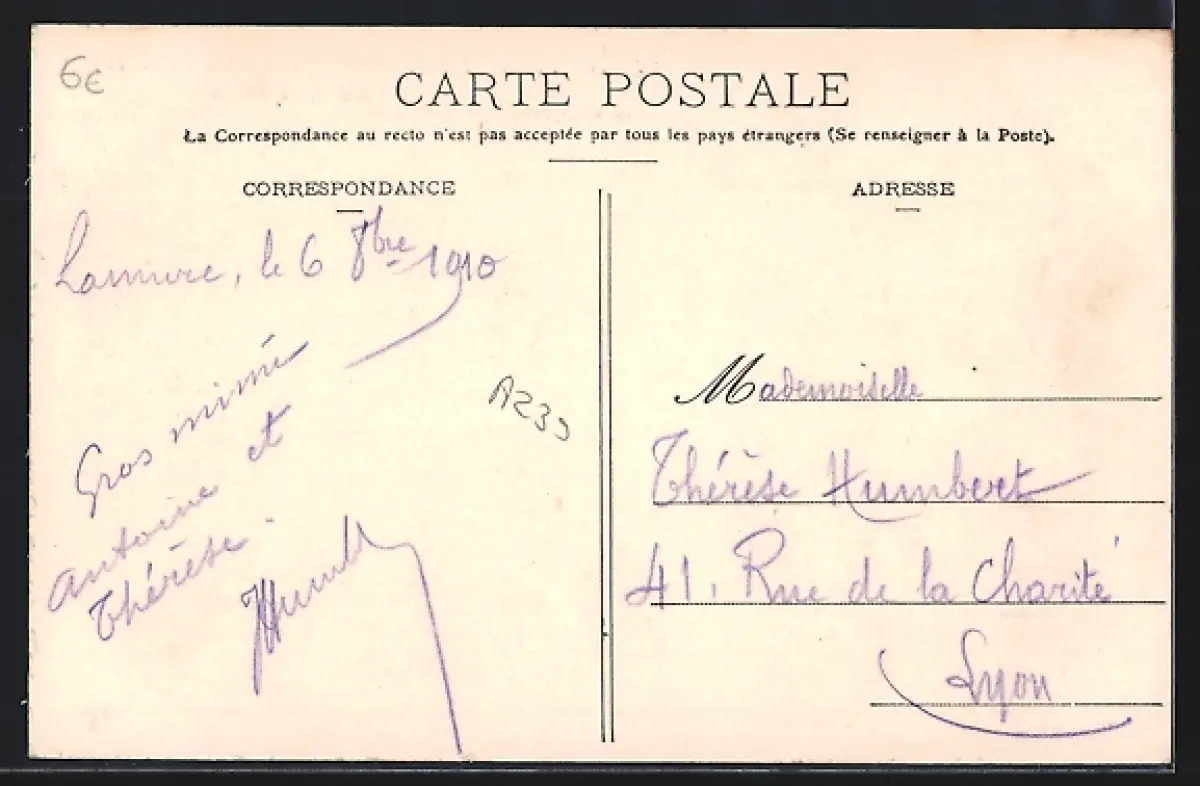 6€
CARTE POSTALE
La Correspondance au recto n'est pas acceptée par tous les pays étrangers (Se renseigner à la Poste).
CORRESPONDANCE
Lamure, le 6 8bre 1910
Gros mimé
Antoine et
Thérèse.
JHumb
A239
ADRESSE
Mademoiselle
Thérèse Humbert
41, Rue de la Charité
Lyon